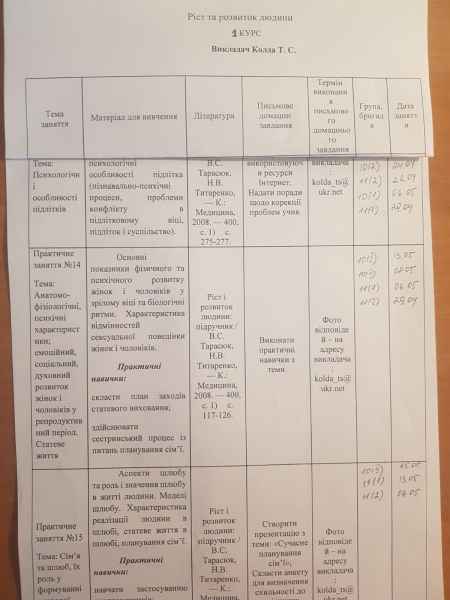 Ріст та розвиток людини
1 КУРС
Викладач Колда Т. С.
Тема заняття
Матеріал для вивчення
Література
Письмове домашнє завдання
Термін виконання письмового домашнього завдання
Група, бригада
Дата заняття
Тема:
Психологічні
особливості
підлітків
психологічні
особливості підлітка
(пізнавально-психічні
процеси, проблеми
конфлікту в
підлітковому віці,
підліток і суспільство).
В.С.
Тарасюк,
Н.В.
Титаренко,
— К.:
Медицина,
2008. — 400,
с. 1) с.
275-277.
використовуючи ресурси
Інтернет.
Надати поради
щодо корекції
проблем
викладача
:
kolda_ts@
ukr.net
Практичне
заняття №14
Тема:
Анатомо-
фізіологічні,
психічні
характерист
ики;
емоційний,
соціальний,
духовний
розвиток
жінок і
чоловіків у
репродуктив
ний період.
Статеве
життя
Основні
показники фізичного та
психічного розвитку
жінок і чоловіків у
зрілому віці та біологічні
ритми. Характеристика
відмінностей
сексуальної поведінки
жінок і чоловіків.
Практичні
навички:
скласти план заходів
статевого виховання;
здійснювати
сестринський процес із
питань планування сім’ї.
Ріст і
розвиток
людини:
підручник /
В.С.
Тарасюк,
Н.В.
Титаренко,
— К.:
Медицина,
2008. — 400,
с. 1) с.
117-126.
Виконати
практичні
навички з
теми
Фото
відповіде
й – на
адресу
викладача
:
kolda_ts@
ukr.net
Практичне
заняття №15
Тема: Сім’я
та шлюб, їх
роль у
формуванні
Аспекти шлюбу
та роль і значення шлюбу
в житті людини. Моделі
шлюбу. Характеристика
реалізації людини в
шлюбі, статеве життя в
шлюбі, планування сім’ї.
Практичні
навички:
навчати застосуванню
Ріст і
розвиток
людини:
підручник /
В.С.
Тарасюк,
Н.В.
Титаренко,
— К.:
Медицина,
Створити
презентацію з
теми: «Сучасне
планування
сім’ї»,
Скласти анкету
для визначення
схильності до
Фото
відповіде
й – на
адресу
викладача
:
kolda_ts@
ukr.net